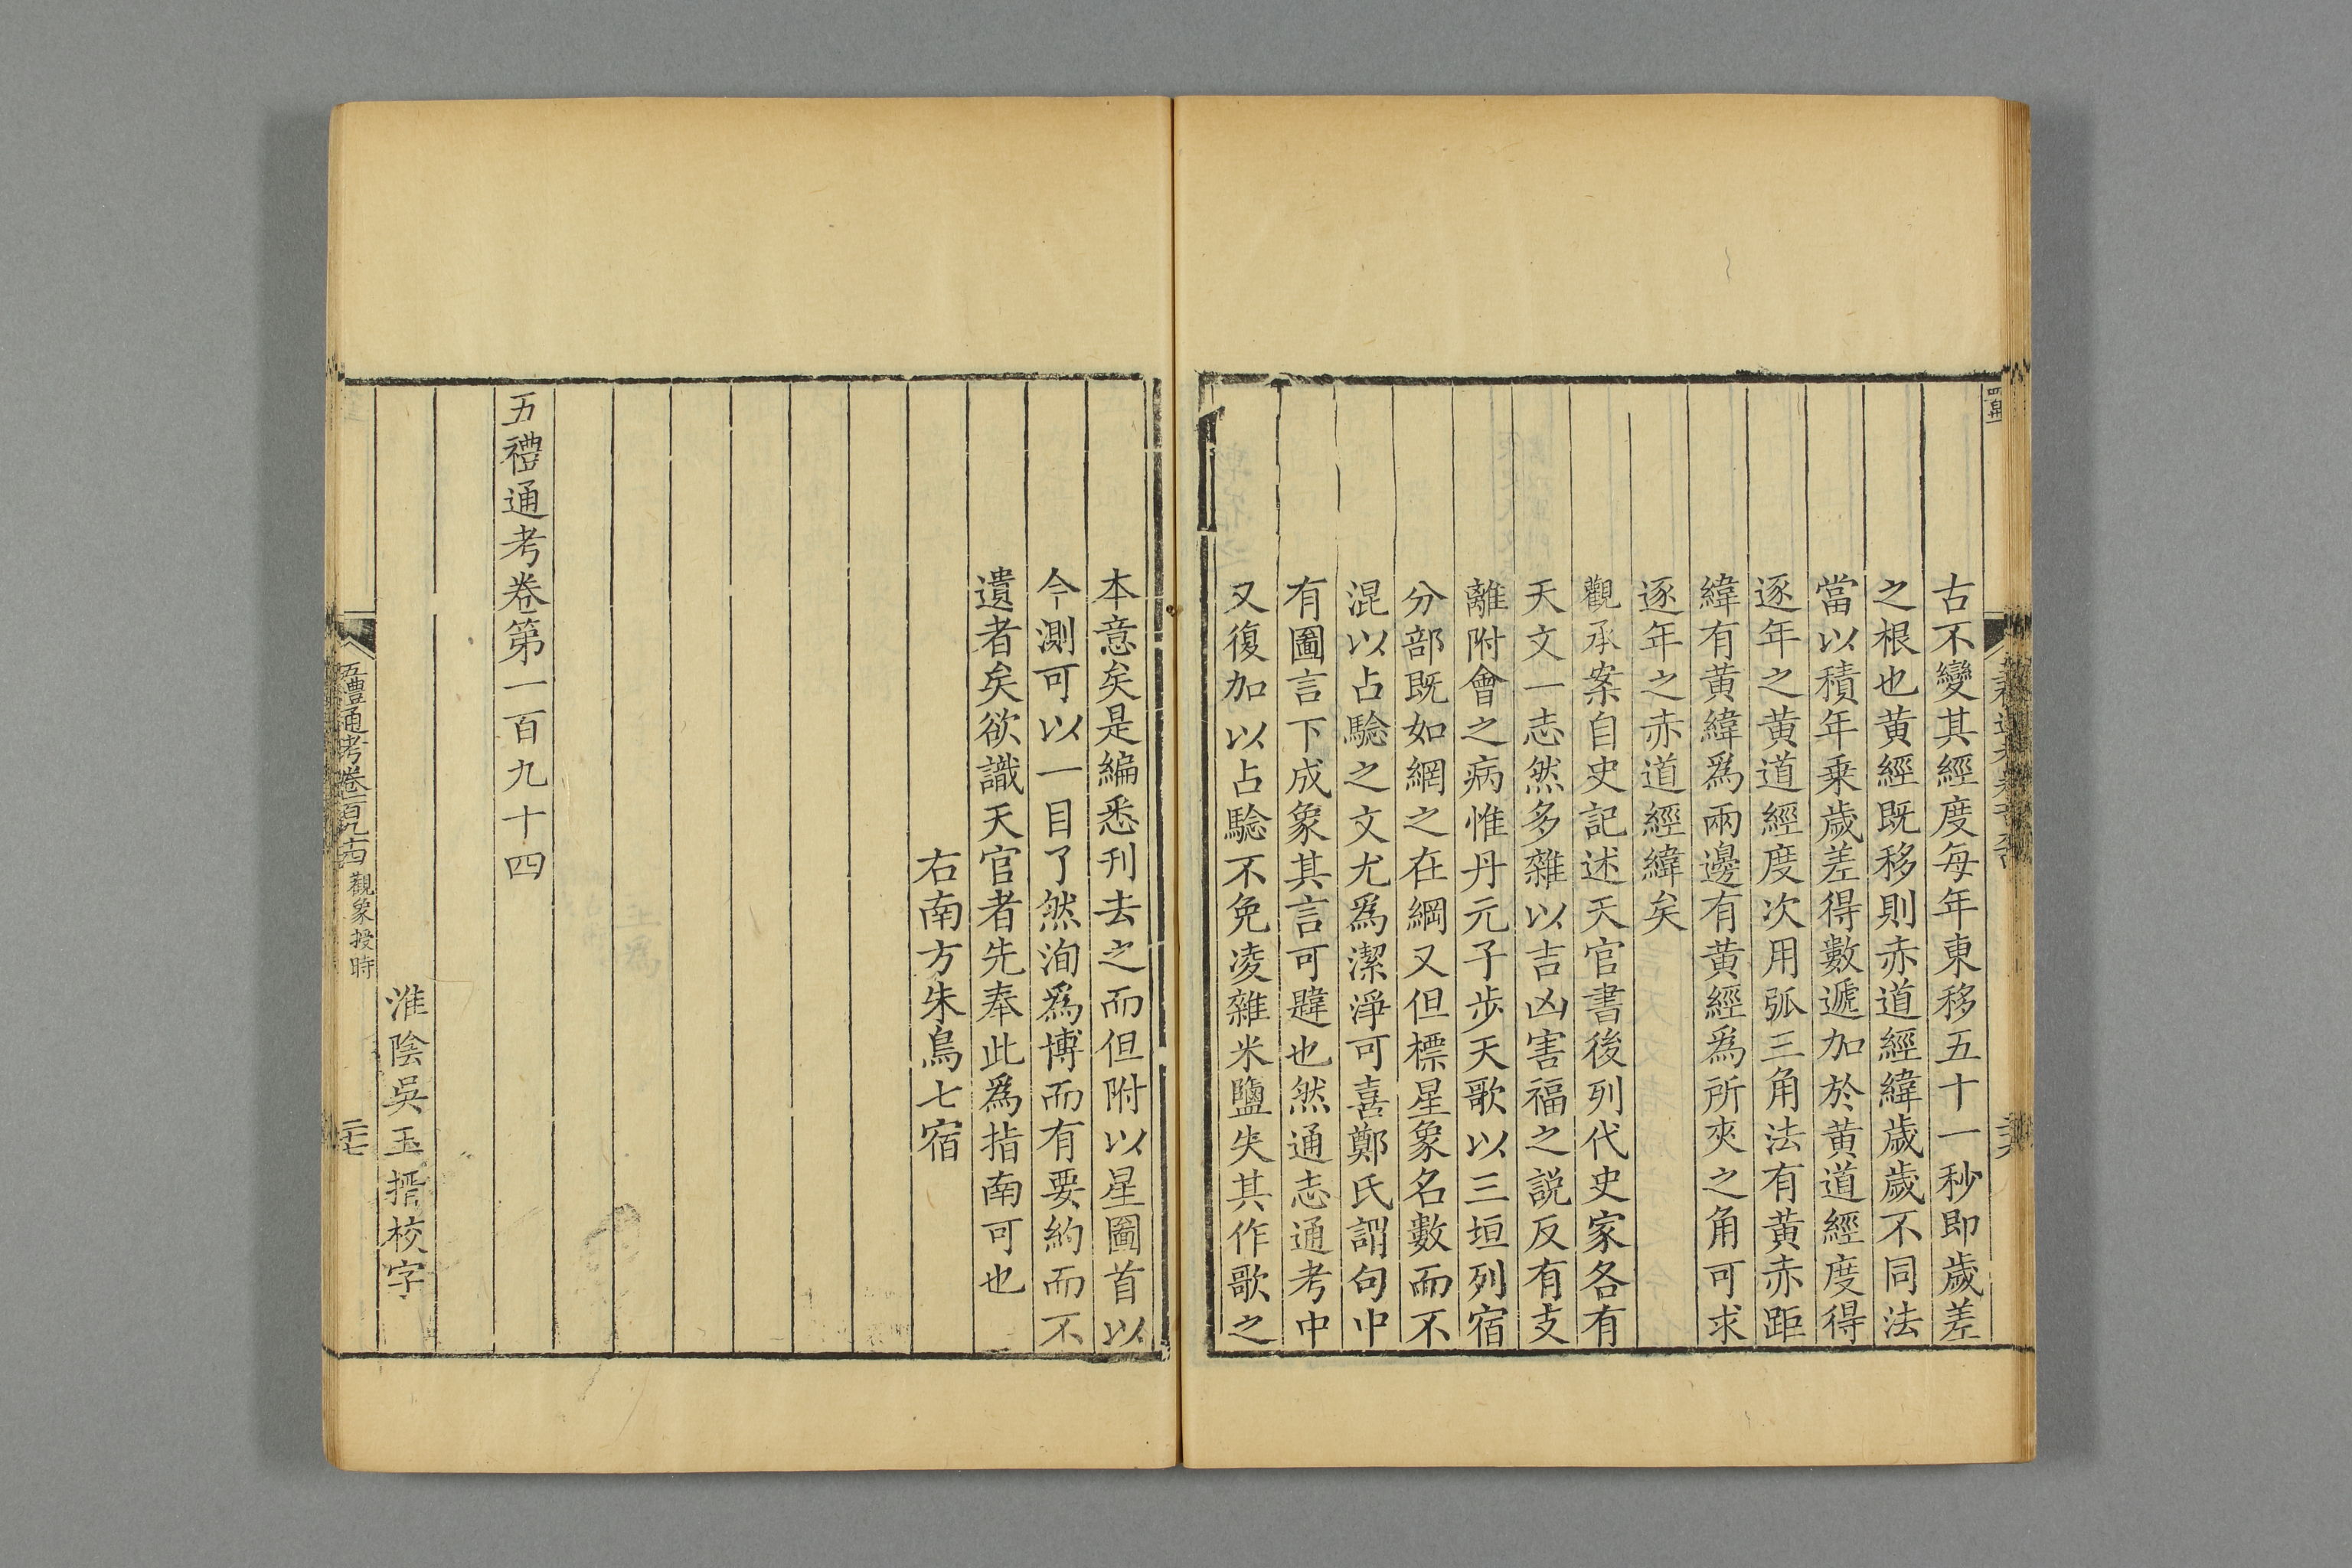 古不變其經度每年東移五十一秒即歲差
之根也黄經既移則赤道經緯歲歲不同法
當以積年乗歲差得數遞加於黄道經度得
逐年之黄道經度次用弧三角法有黄赤距
緯有黄緯爲兩邊有黄經爲所夾之角可求
逐年之赤道經緯矣
觀承案自史記述天官書後列代史家各有
天文一志然多雜以吉凶害福之説反有支
離附會之病惟丹元子步天歌以三垣列宿
分部既如網之在綱又但標星象名數而不
混以占騐之文尤爲潔淨可喜鄭氏謂句中
有圖言下成象其言可韙也然通志通考中
又復加以占騐不免凌雜米鹽失其作歌之
本意矣是編悉刊去之而但附以星圖首以
今測可以一目了然洵爲博而有要約而不
遺者矣欲識天官者先奉此爲指南可也
右南方朱鳥七宿
五禮通考卷第一百九十四
淮陰吳玉搢校字
五禮通考卷一百九十四 觀象授時
二十七